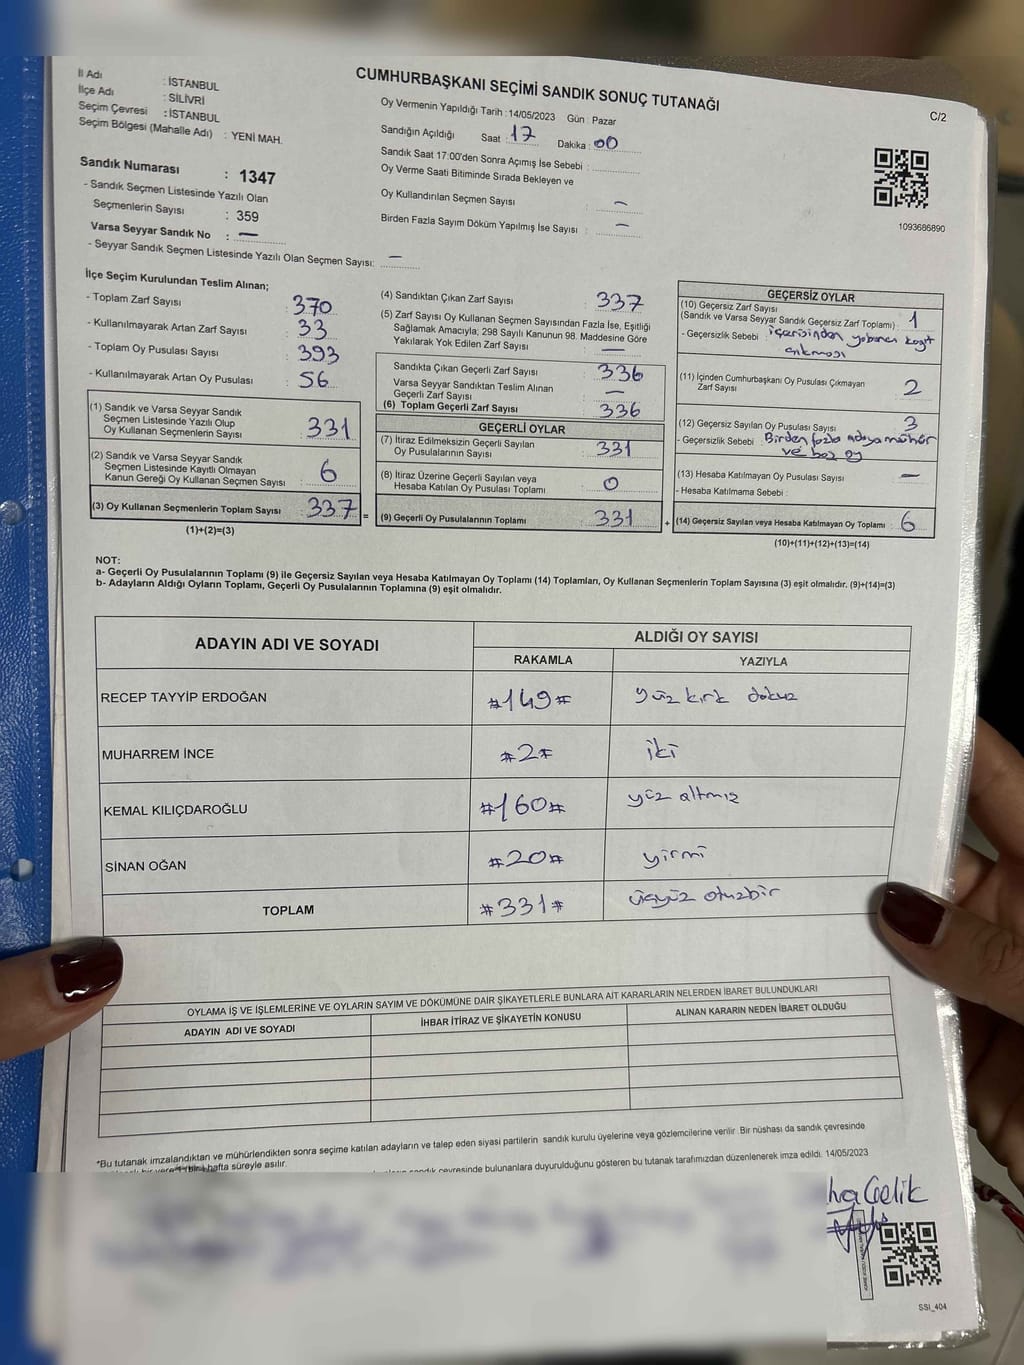 CUMHURBAŞKANI SEÇİMİ SANDIK SONUÇ TUTANAĞI
C/2
İl Adı : İSTANBUL
İlçe Adı : SİLİVRİ
Seçim Çevresi : İSTANBUL
Seçim Bölgesi (Mahalle Adı) : YENİ MAH.
Sandık Numarası : 1347
- Sandık Seçmen Listesinde Yazılı Olan
Seçmenlerin Sayısı : 359
Varsa Seyyar Sandık No : —
- Seyyar Sandık Seçmen Listesinde Yazılı Olan Seçmen Sayısı: —
Oy Vermenin Yapıldığı Tarih : 14/05/2023 Gün : Pazar
Sandığın Açıldığı Saat : 17 Dakika : 00
Sandık Saat 17:00'den Sonra Açımış İse Sebebi :
Oy Verme Saati Bitiminde Sırada Bekleyen ve
Oy Kullandırılan Seçmen Sayısı : —
Birden Fazla Sayım Döküm Yapılmış İse Sayısı : —
1093686890
İlçe Seçim Kurulundan Teslim Alınan;
- Toplam Zarf Sayısı : 370
- Kullanılmayarak Artan Zarf Sayısı : 33
- Toplam Oy Pusulası Sayısı : 393
- Kullanılmayarak Artan Oy Pusulası : 56
(1) Sandık ve Varsa Seyyar Sandık
Seçmen Listesinde Yazılı Olup
Oy Kullanan Seçmenlerin Sayısı : 331
(2) Sandık ve Varsa Seyyar Sandık
Seçmen Listesinde Kayıtlı Olmayan
Kanun Gereği Oy Kullanan Seçmen Sayısı : 6
(3) Oy Kullanan Seçmenlerin Toplam Sayısı : 337 =
(1)+(2)=(3)
(4) Sandıktan Çıkan Zarf Sayısı : 337
(5) Zarf Sayısı Oy Kullanan Seçmen Sayısından Fazla İse, Eşitliği
Sağlamak Amacıyla; 298 Sayılı Kanunun 98. Maddesine Göre
Yakılarak Yok Edilen Zarf Sayısı : —
Sandıkta Çıkan Geçerli Zarf Sayısı : 336
Varsa Seyyar Sandıktan Teslim Alınan
Geçerli Zarf Sayısı : —
(6) Toplam Geçerli Zarf Sayısı : 336
GEÇERLİ OYLAR
(7) İtiraz Edilmeksizin Geçerli Sayılan
Oy Pusulalarının Sayısı : 331
(8) İtiraz Üzerine Geçerli Sayılan veya
Hesaba Katılan Oy Pusulası Toplamı : 0
(9) Geçerli Oy Pusulalarının Toplamı : 331 +
GEÇERSİZ OYLAR
(10) Geçersiz Zarf Sayısı
(Sandık ve Varsa Seyyar Sandık Geçersiz Zarf Toplamı) : 1
- Geçersizlik Sebebi : içerisinden yabancı kağıt
çıkması
(11) İçinden Cumhurbaşkanı Oy Pusulası Çıkmayan
Zarf Sayısı : 2
(12) Geçersiz Sayılan Oy Pusulası Sayısı : 3
- Geçersizlik Sebebi : Birden fazla adaya mühür
ve boş oy
(13) Hesaba Katılmayan Oy Pusulası Sayısı : —
- Hesaba Katılmama Sebebi :
(14) Geçersiz Sayılan veya Hesaba Katılmayan Oy Toplamı : 6
(10)+(11)+(12)+(13)=(14)
NOT:
a- Geçerli Oy Pusulalarının Toplamı (9) ile Geçersiz Sayılan veya Hesaba Katılmayan Oy Toplamı (14) Toplamları, Oy Kullanan Seçmenlerin Toplam Sayısına (3) eşit olmalıdır. (9)+(14)=(3)
b- Adayların Aldığı Oyların Toplamı, Geçerli Oy Pusulalarının Toplamına (9) eşit olmalıdır.
ADAYIN ADI VE SOYADI
ALDIĞI OY SAYISI
RAKAMLA YAZIYLA
RECEP TAYYİP ERDOĞAN #149# yüz kırk dokuz
MUHARREM İNCE #2# iki
KEMAL KILIÇDAROĞLU #160# yüz altmış
SİNAN OĞAN #20# yirmi
TOPLAM #331# üçyüz otuzbir
OYLAMA İŞ VE İŞLEMLERİNE VE OYLARIN SAYIM VE DÖKÜMÜNE DAİR ŞİKAYETLERLE BUNLARA AİT KARARLARIN NELERDEN İBARET BULUNDUKLARI
ADAYIN ADI VE SOYADI İHBAR İTİRAZ VE ŞİKAYETİN KONUSU ALINAN KARARIN NEDEN İBARET OLDUĞU
*Bu tutanak imzalandıktan ve mühürlendikten sonra seçime katılan adayların ve talep eden siyasi partilerin sandık kurulu üyelerine veya gözlemcilerine verilir. Bir nüshası da sandık çevresinde
hafta süreyle asılır.
sandık çevresinde bulunanlara duyurulduğunu gösteren bu tutanak tarafımızdan düzenlenerek imza edildi. 14/05/2023
Çelik
SSI_404